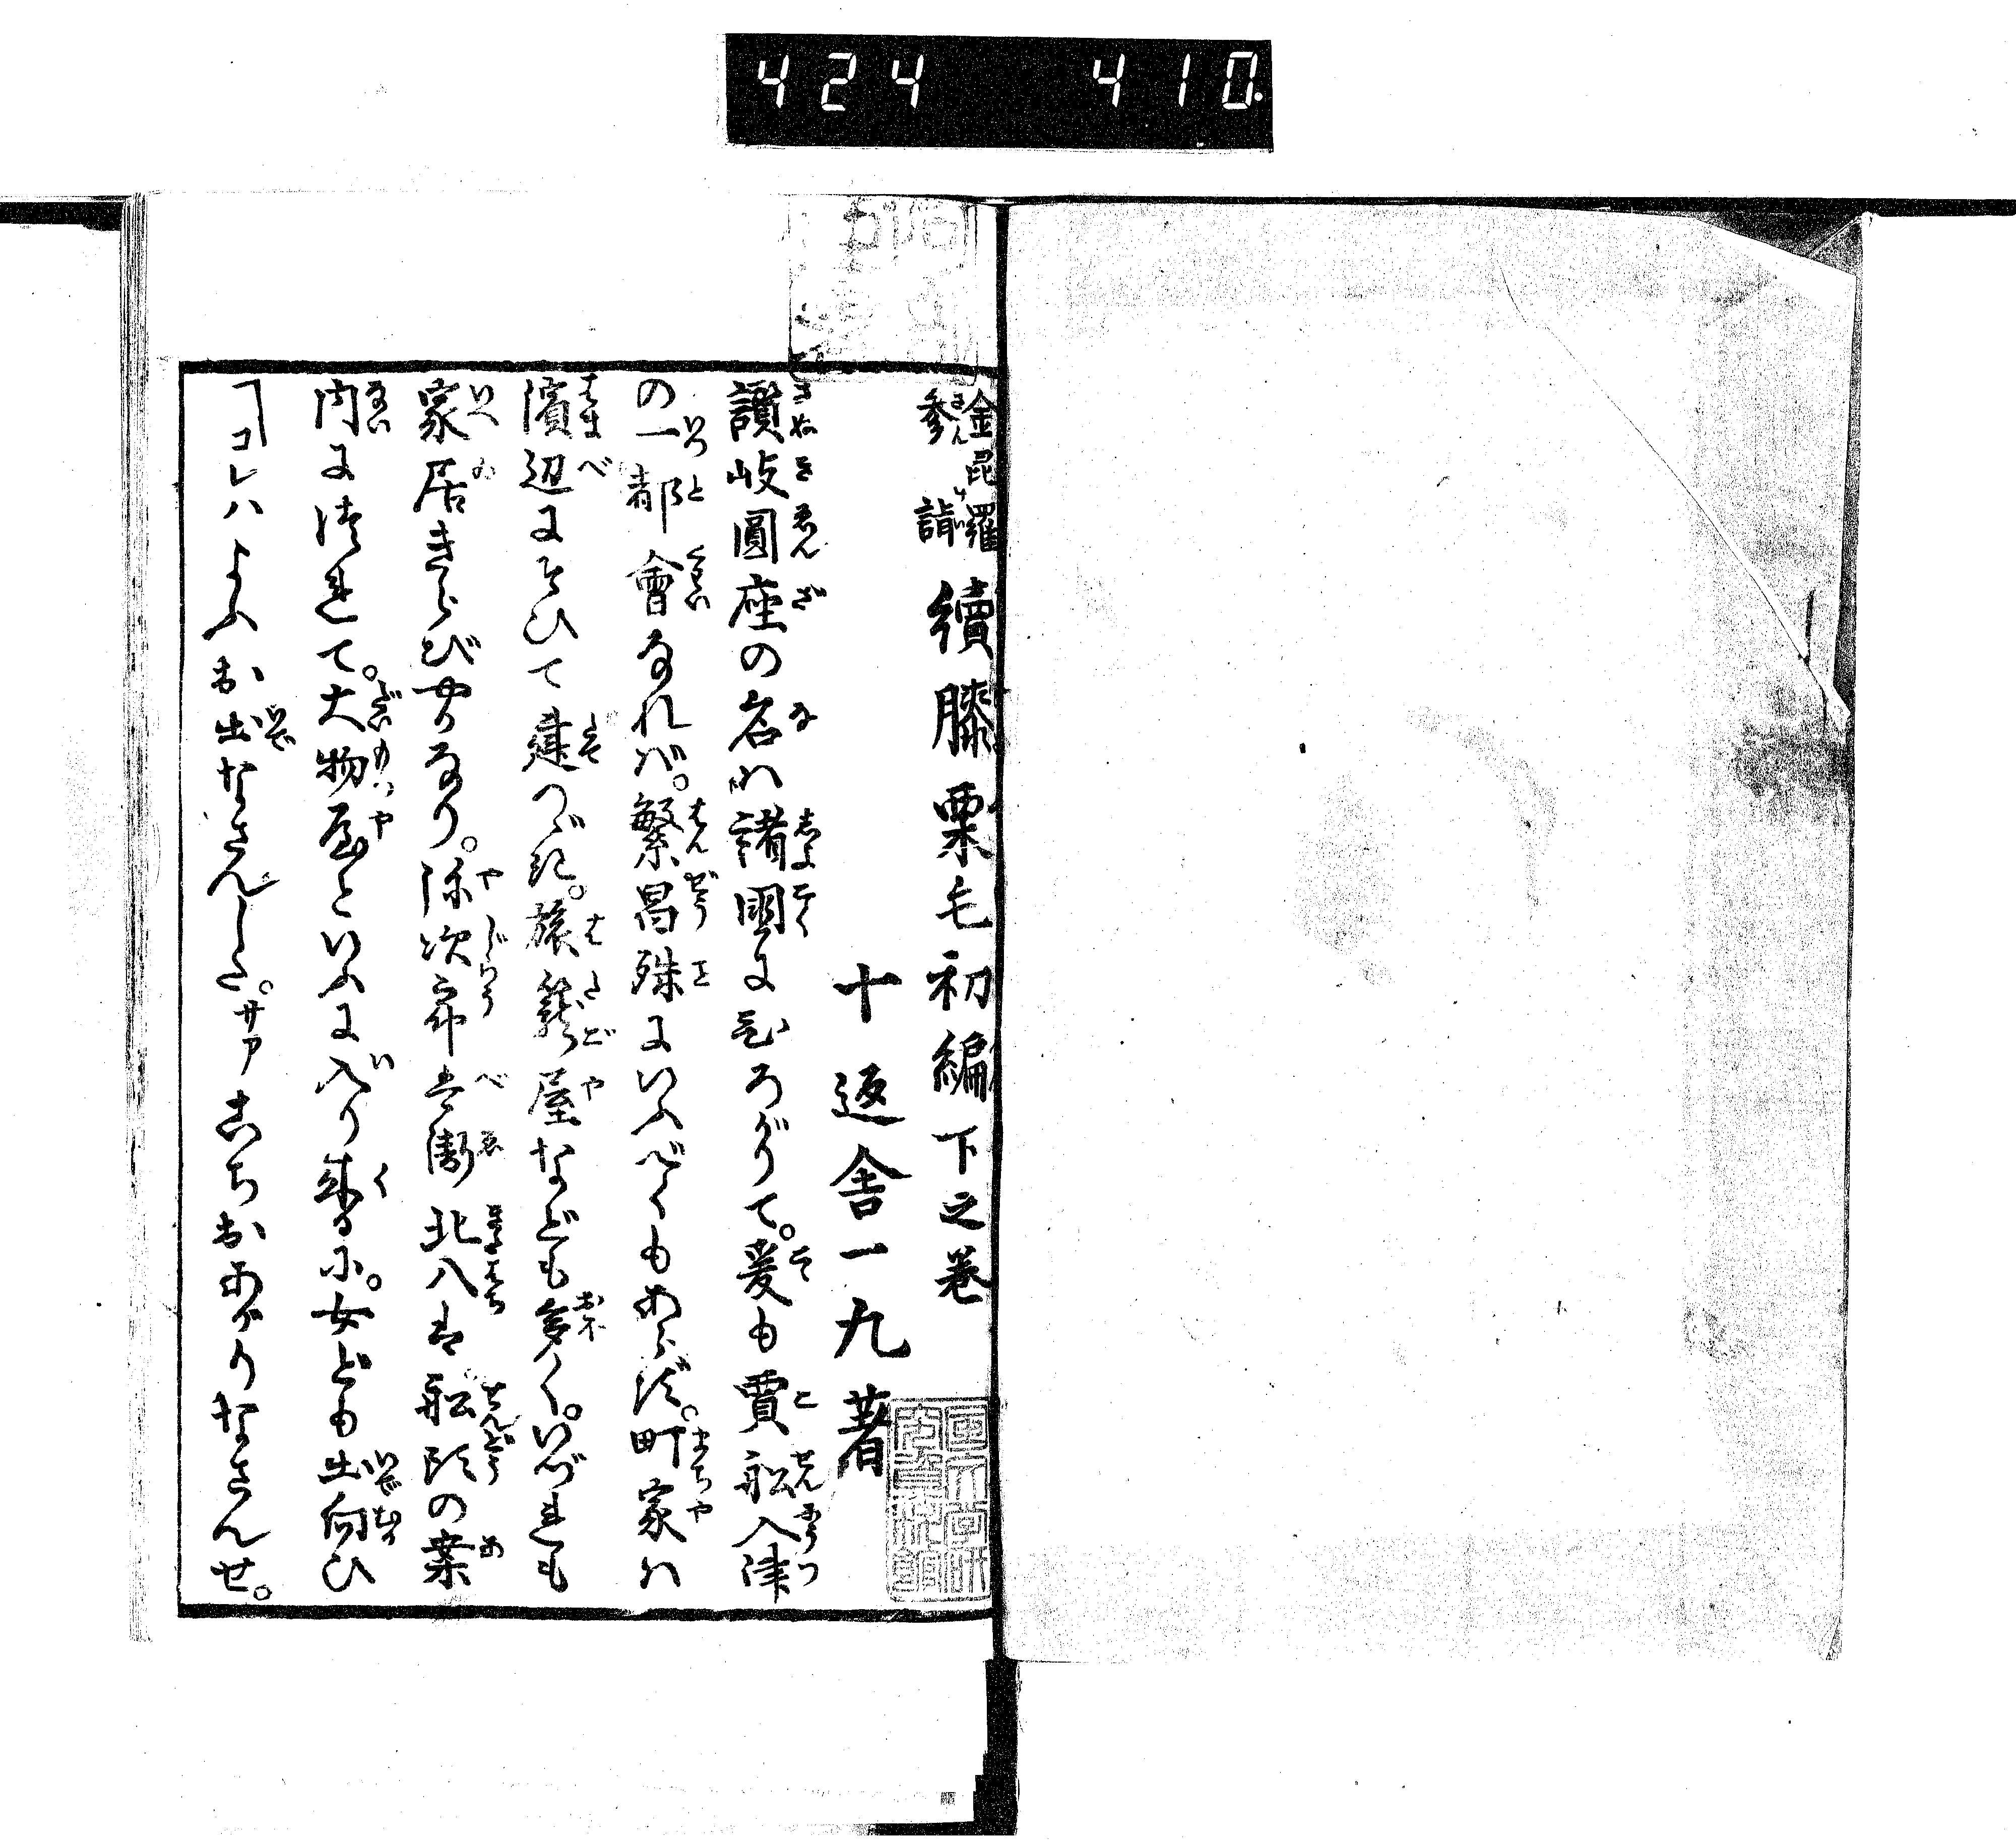 424 410
金昆羅
參詣
續膝栗毛初編下之巻
十返舎一九著
讃岐圓座の名ハ諸國にひろがりて。爰も賈舩入津
の一都會なれバ。繁昌殊にいふべくもあらず。町家ハ
濱辺にそひて建つゞき。旅籠屋なども多く。いづれも
家居きらびやかなり。弥次郎兵衛北八は舩頭の案
内につれて。大物屋といふに入り来るに。女ども出向ひ
「コレハようお出なさんした。サアこちおあがりなさんせ。